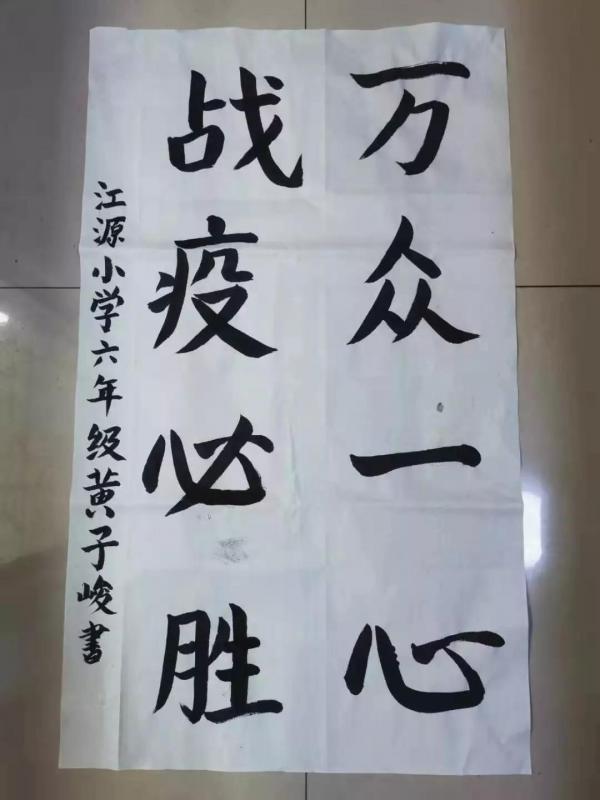 万众一心
战疫必胜
江源小学六年级黄子峻書